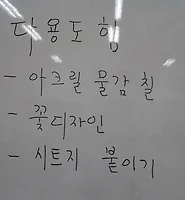 다용도 함
- 아크릴 물감 칠
- 꽃디자인
- 시트지 붙이기